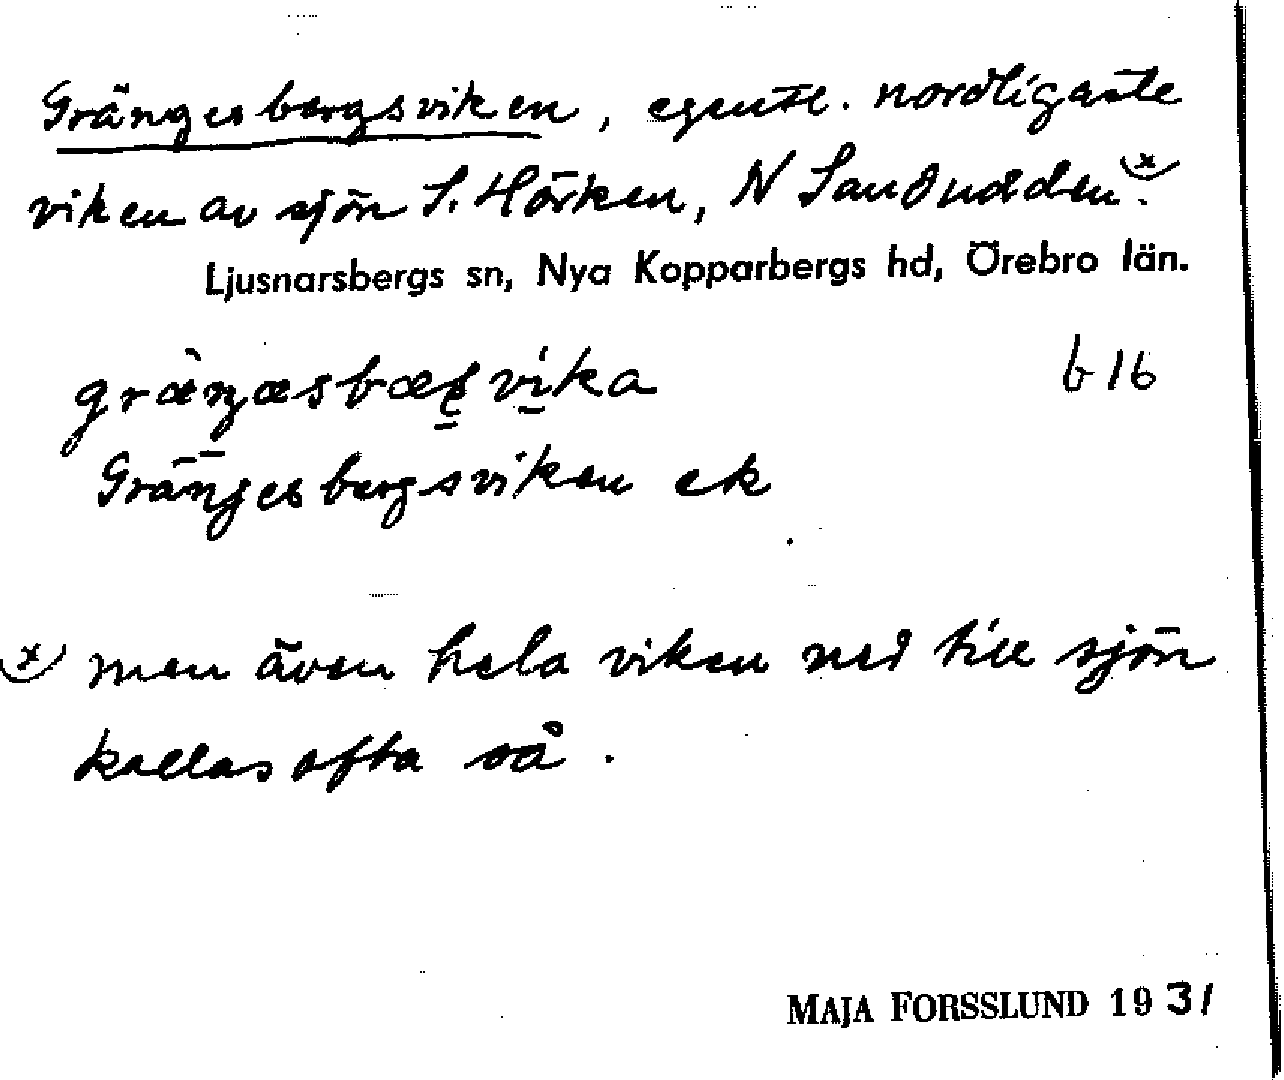 Grängesbergsviken, egentl. nordligaste
viken av sjön S. Hörken, N Sandudden x).
Ljusnarsbergs sn, Nya Kopparbergs hd, Örebro län.
vika b 16
Grängesbergsviken ek
x) men även hela viken ned till sjön
kallas ofta så.
MAJA FORSSLUND 1931